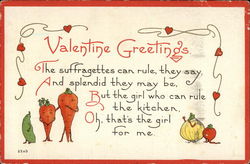 Valentine Greetings.
The suffragettes can rule, they say,
And splendid they may be,
But the girl who can rule
the kitchen,
Oh, that's the girl
for me.